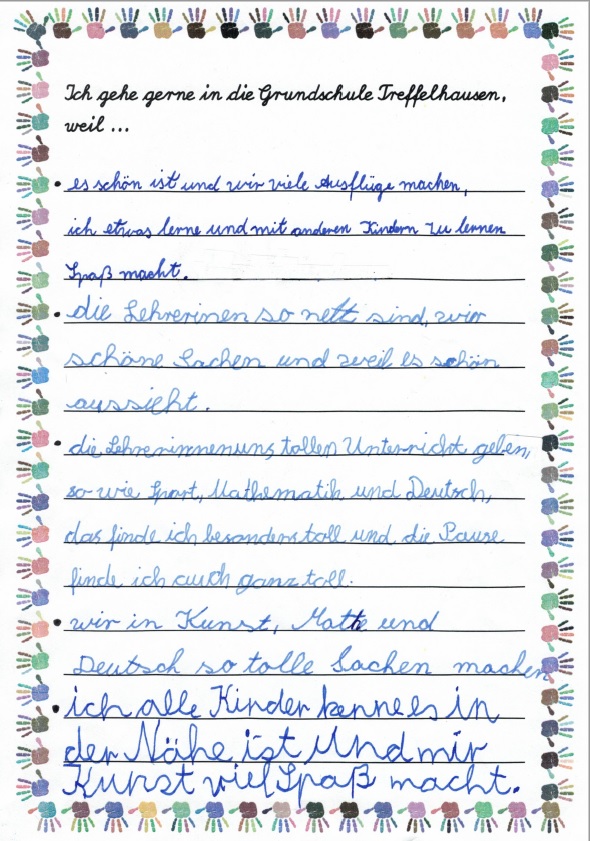 Ich gehe gerne in die Grundschule Treffelhausen,
weil ...
• es schön ist und wir viele Ausflüge machen,
ich etwas lerne und mit anderen Kindern zu lernen
Spaß macht.
• die Lehrerinen so nett sind, wir
schöne Sachen und weil es schön
aussieht.
• die Lehrerinnen uns tollen Unterricht geben,
so wie Sport, Mathematik und Deutsch,
das finde ich besonders toll und die Pause
finde ich auch ganz toll.
• wir in Kunst, Mathe und
Deutsch so tolle Sachen machen
• ich alle Kinder kenne es in
der Nähe ist Und mir
Kunst viel Spaß macht.